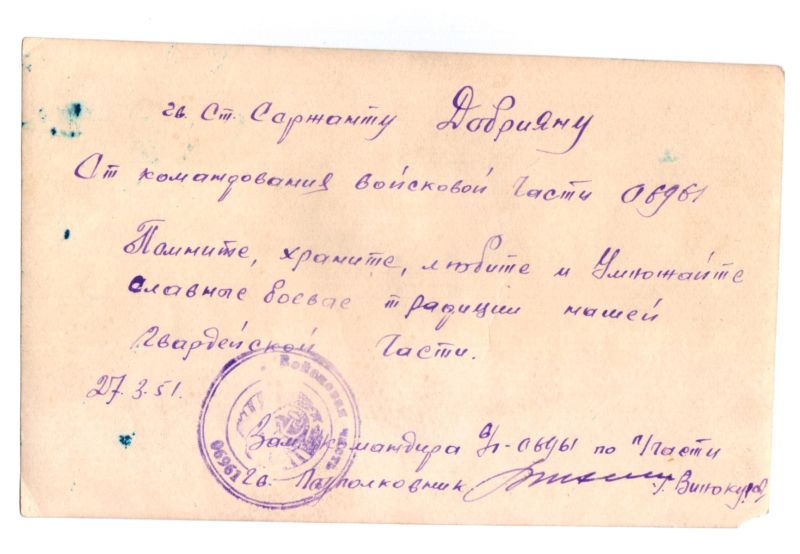 гв. Ст. Сержанту Добрияну
От командования войсковой Части 06961
Помните, храните, любите и Умножайте
славные боевые традиции нашей
Гвардейской Части.
27.3.51.
Войсковая часть 06961
Зам. командира в/ч-06961 по п/части
Гв. Подполковник Винокуров